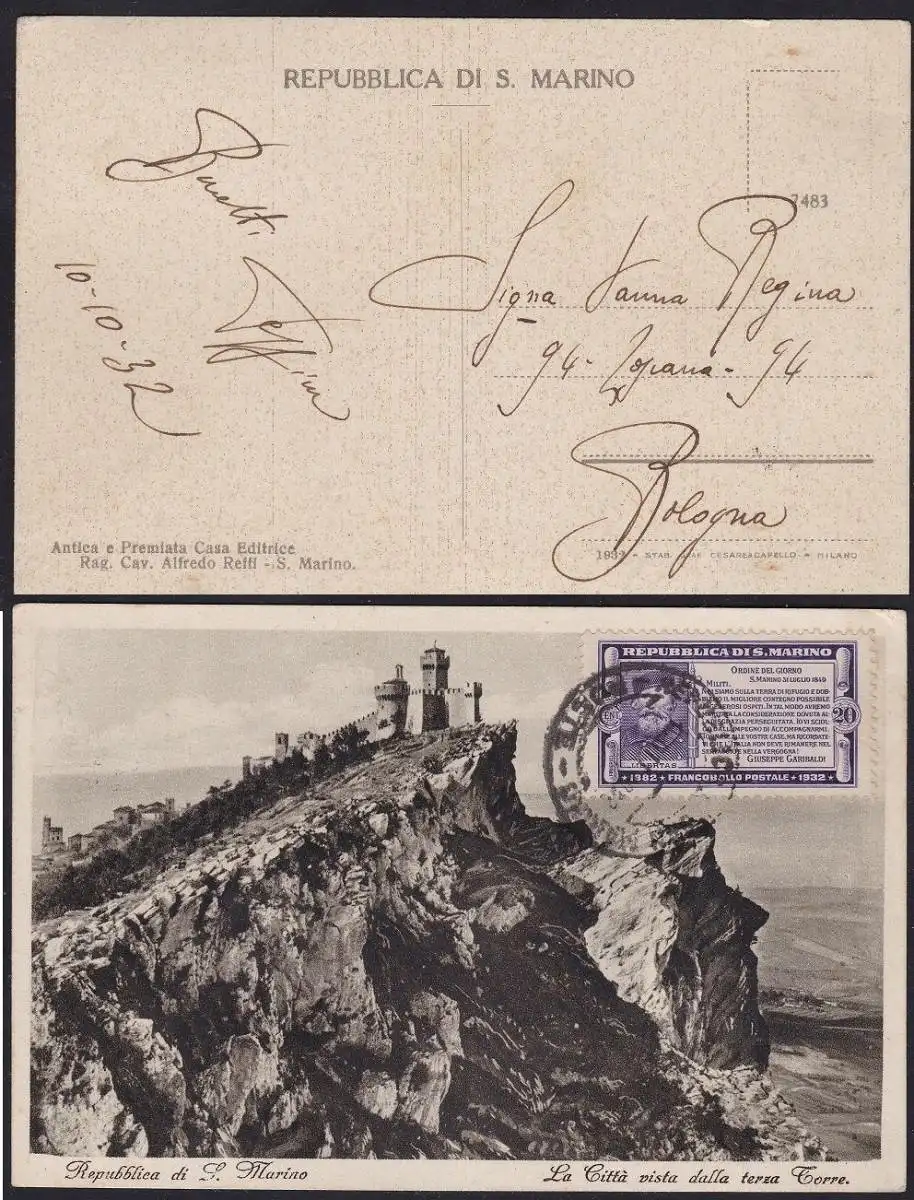 REPUBBLICA DI S. MARINO
7483
10-10-32
Signa Vanna Regina
94 - - 94
Bologna
Antica e Premiata Casa Editrice
Rag. Cav. Alfredo Reffi - S. Marino.
STAB. CESARE CAPELLO - MILANO
REPUBBLICA DI S. MARINO
ORDINE DEL GIORNO
S. MARINO 31 LUGLIO 1849
MILITI.
SIAMO SULLA TERRA DI RIFUGIO E DOB-
IL MIGLIORE CONTEGNO POSSIBILE
GENEROSI OSPITI. IN TAL MODO AVREMO
LA CONSIDERAZIONE DOVUTA AL
PERSEGUITATA. IO VI
DALL'IMPEGNO DI ACCOMPAGNARMI.
ALLE VOSTRE CASE, MA RICORDATE
CHE L'ITALIA NON DEVE RIMANERE NEL
E NELLA VERGOGNA!
GIUSEPPE GARIBALDI
CENT.
20
LIBERTAS
1882 • FRANCOBOLLO POSTALE • 1932
Repubblica di S. Marino
La Città vista dalla terza Torre.